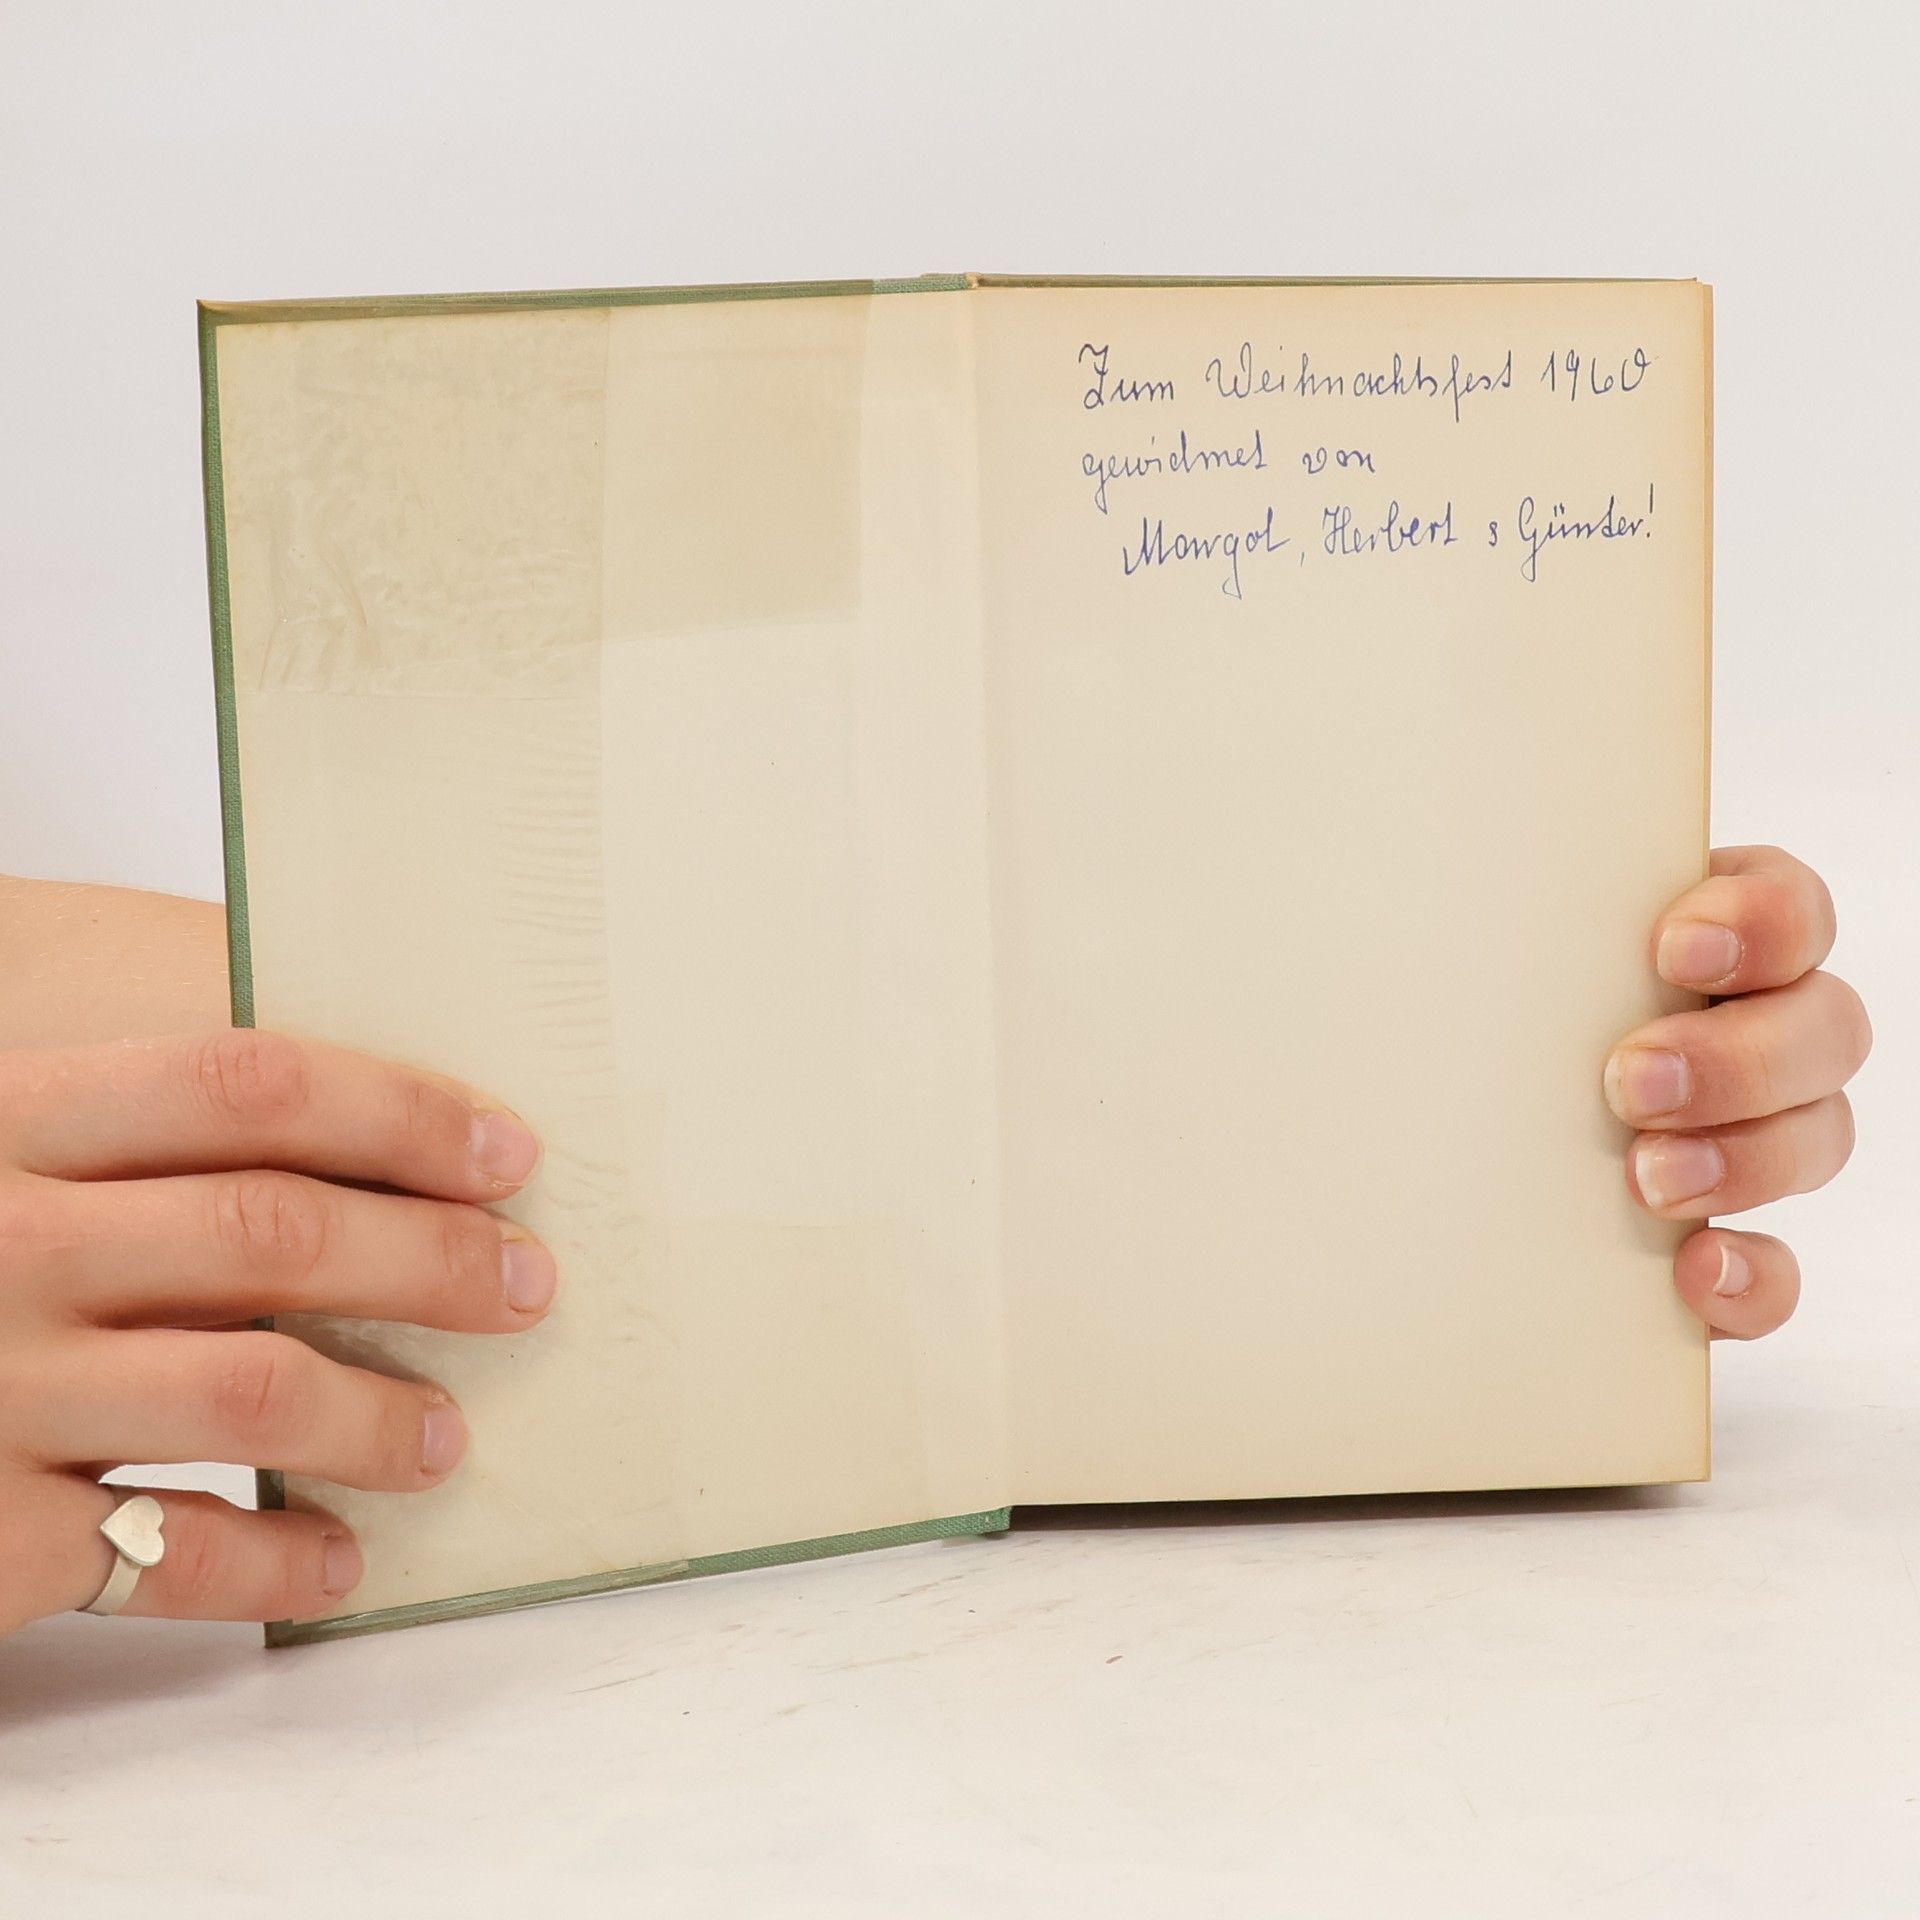 Zum Weihnachtsfest 1960
gewidmet von
Margot, Herbert & Günter!